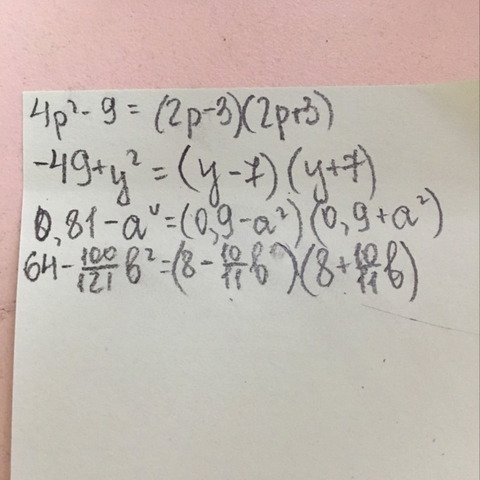 4p² - 9 = (2p-3)(2p+3)
-49+y² = (y-7)(y+7)
0,81-a⁴=(0,9-a²)(0,9+a²)
64-100/121 b²=(8-10/11 b)(8+10/11 b)